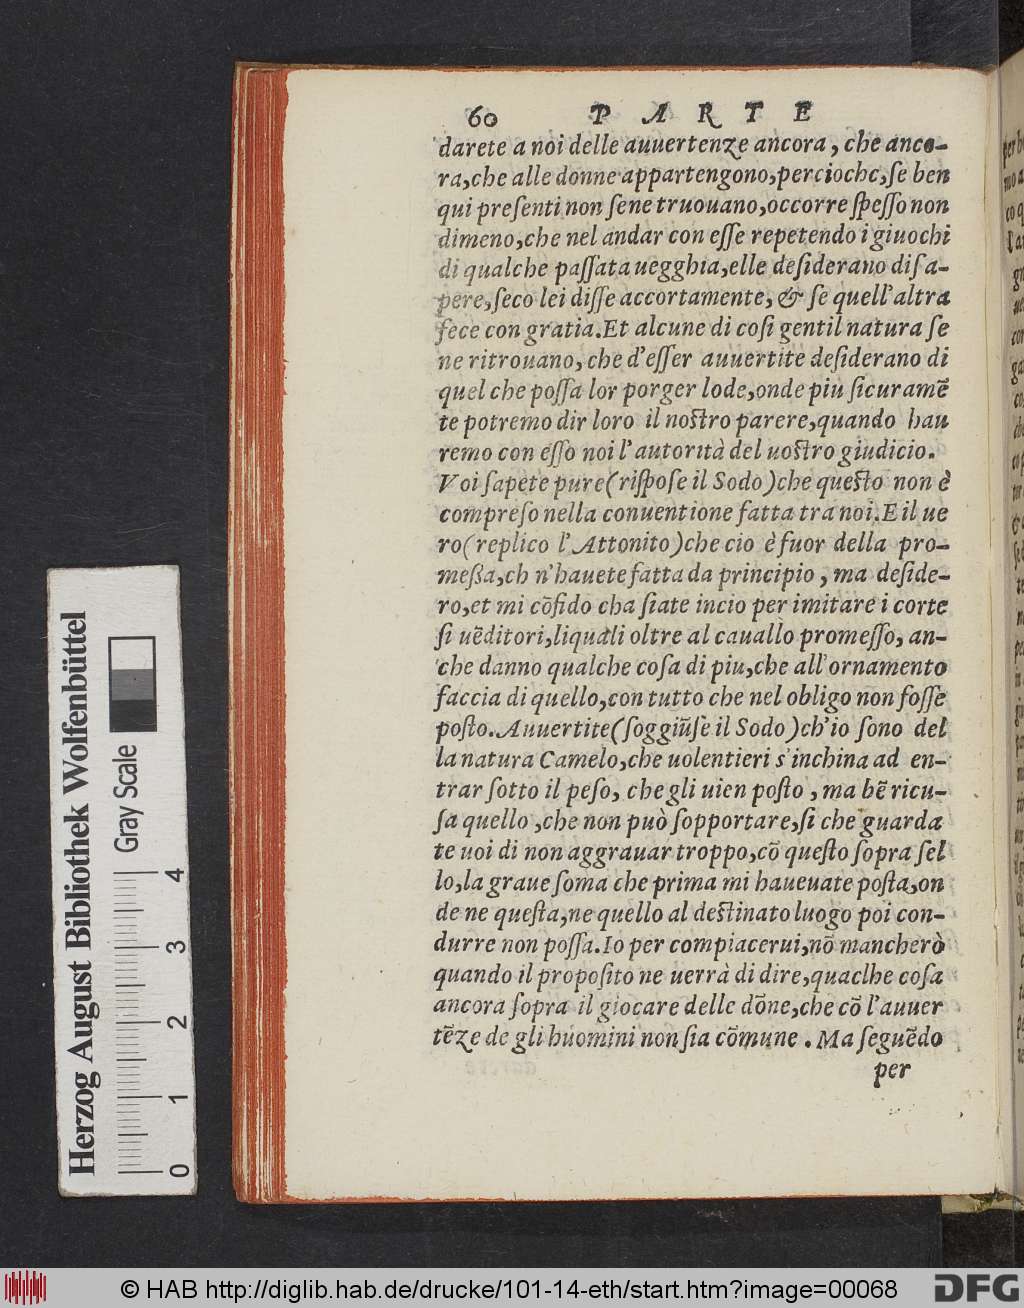 60 PARTE
darete a noi delle auuertenze ancora, che anco-
ra,che alle donne appartengono,percioche,ſe ben
qui preſenti non ſene truouano,occorre ſpeſſo non
dimeno,che nel andar con eſſe repetendo i giuochi
di qualche paſſata uegghia,elle deſiderano diſa-
pere,ſeco lei diſſe accortamente, & ſe quell'altra
fece con gratia.Et alcune di coſi gentil natura ſe
ne ritrouano, che d'eſſer auuertite deſiderano di
quel che poſſa lor porger lode,onde piu ſicuramẽ
te potremo dir loro il noſtro parere,quando hau
remo con eſſo noi l'autorità del uoſtro giudicio.
Voi ſapete pure(riſpoſe il Sodo)che queſto non è
compreſo nella conuentione fatta tra noi.E il ue
ro(replico l'Attonito)che cio è fuor della pro-
meßa,ch n'hauete fatta da principio, ma deſide-
ro,et mi cõfido cha ſiate incio per imitare i corte
ſi uẽditori,liquali oltre al cauallo promeſſo, an-
che danno qualche coſa di piu,che all'ornamento
faccia di quello,con tutto che nel obligo non foſſe
poſto.Auuertite(ſoggiũſe il Sodo)ch'io ſono del
la natura Camelo,che uolentieri s'inchina ad en-
trar ſotto il peſo, che gli uien poſto, ma bẽ ricu-
ſa quello,che non può ſopportare,ſi che guarda
te uoi di non aggrauar troppo,cõ queſto ſopra ſel
lo,la graue ſoma che prima mi haueuate poſta,on
de ne queſta,ne quello al deſtinato luogo poi con-
durre non poſſa.Io per compiacerui,nõ mancherò
quando il propoſito ne uerrà di dire,quaclhe coſa
ancora ſopra il giocare delle dõne,che cõ l'auuer
tẽze de gli huomini non ſia cõmune. Ma ſeguẽdo
per
Herzog August Bibliothek Wolfenbüttel
Gray Scale
0 1 2 3 4
© HAB http://diglib.hab.de/drucke/101-14-eth/start.htm?image=00068
DFG